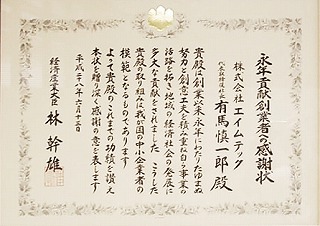 永年貢献創業者の感謝状
株式会社エイムテック
代表取締役社長 有馬慎一郎 殿
貴殿は創業以来永年にわたりたゆまぬ
努力と創意工夫を積み重ね自ら事業の
活路を拓き地域の経済社会の発展に
多大な貢献をされました こうした
貴殿の取り組みは我が国の中小企業者の
模範となるものであります
よって貴殿のこれまでの功績を讃え
本状を贈り深く感謝の意を表します
平成二十八年六月十三日
経済産業大臣 林 幹雄